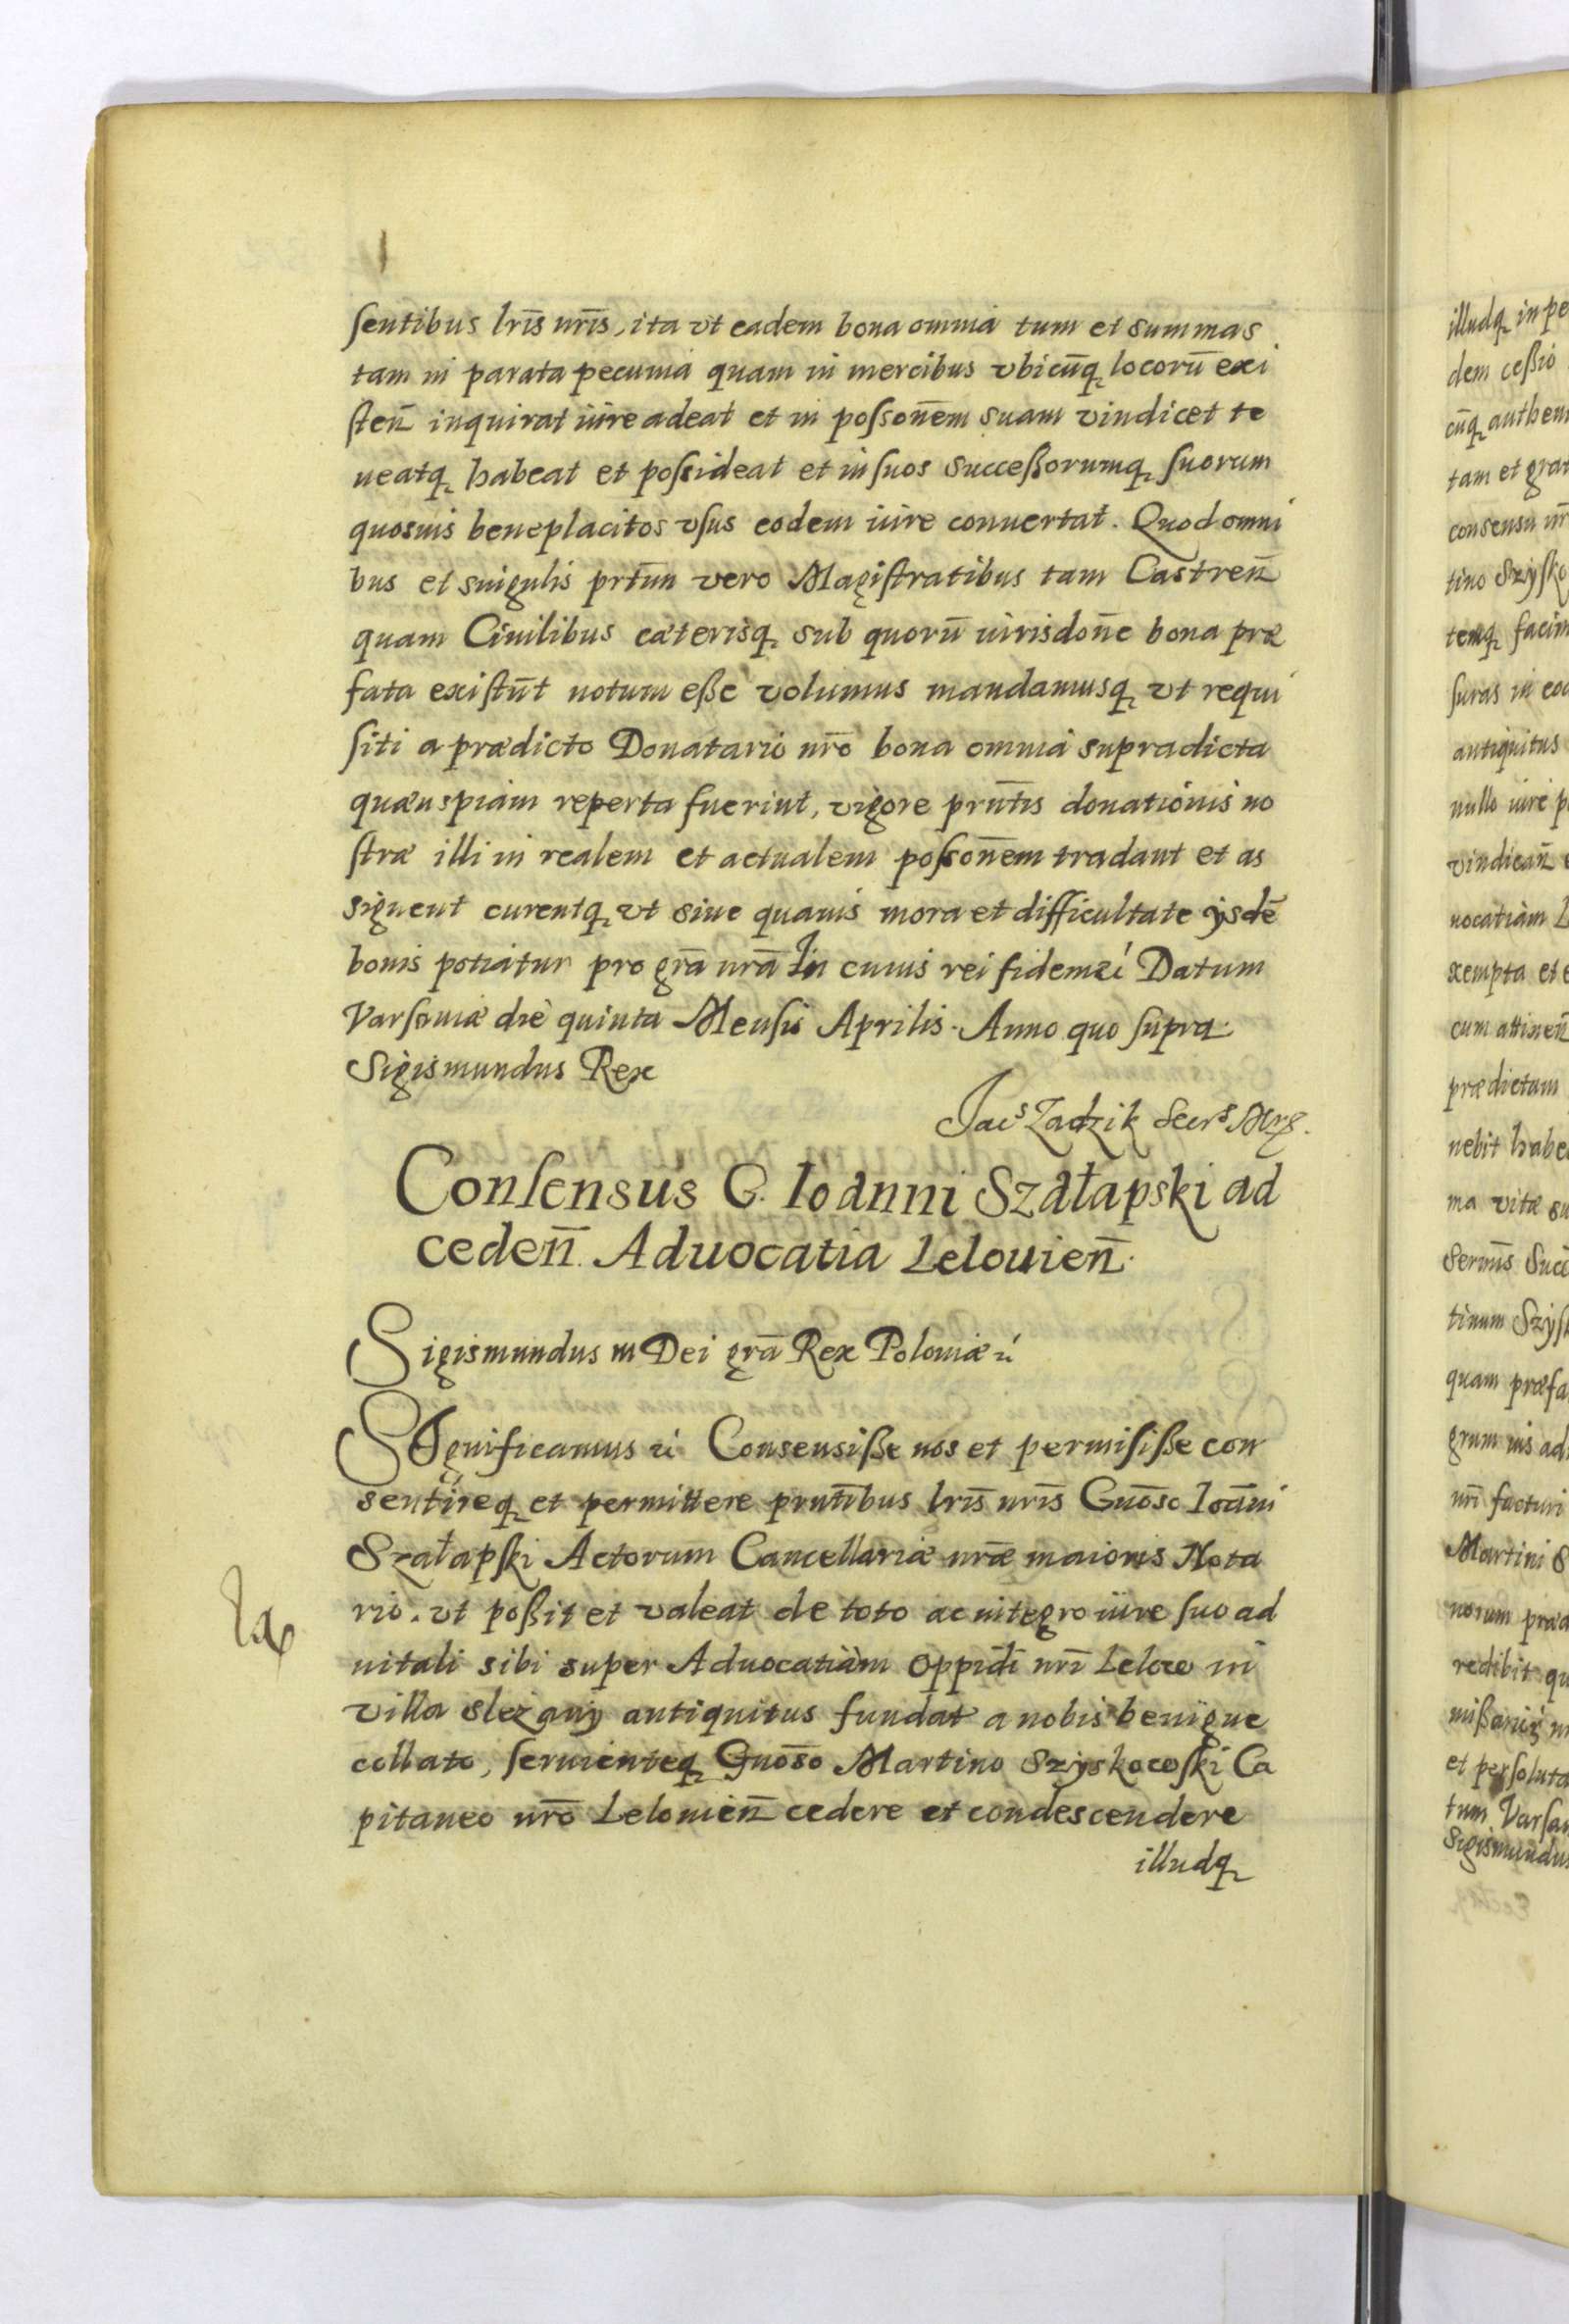 sentibus lrīs nrīs, ita vt eadem bona omnia tum et summas
tam in parata pecunia quam in mercibus vbicūq locorū exi
steñ inquirat iure adeat et in possonēm suam vindicet te
neatq habeat et possideat et in suos successorumq suorum
quosuis beneplacitos vsus eodem iure conuertat. Quod omni
bus et singulis prtīm vero Magistratibus tam Castreñ
quam Ciuilibus cæterisq sub quorū iurisdonē bona præ
fata existūt notum esse volumus mandamusq vt requi
siti a prædicto Donatario nrō bona omnia supradicta
quæuspiam reperta fuerint, vigore prntīs donationis no
stræ illi in realem et actualem possonēm tradant et as
signent curentq vt sine quauis mora et difficultate ijsdē
bonis potiatur pro grā nrā In cuius rei fidem &c Datum
Varsauiæ die quinta Mensis Aprilis. Anno quo supra.
Sigismundus Rex
Jacs Zadzik Secrs Mrs.
Consensus G. Ioanni Szałapski ad
cedeñ. Aduocatia Lelouieñ.
Sigismundus III Dei grā Rex Poloniæ &c
SIgnificamus &c Consensisse nos et permisisse con
sentireq et permittere prntībus lrīs nrīs Gnōso Ioāni
Szałapski Actorum Cancellariæ nræ maioris Nota
rio. vt possit et valeat de toto ac integro iure suo ad
uitali sibi super Aduocatiam Oppidi nrī Lelow in
villa Slezany antiquitus fundat a nobis benigne
collato, seruienteq Gnōso Martino Szyskowski Ca
pitaneo nrō Lelouieñ cedere et condescendere
illudq
illudq in pe
dem cessio
cūq authen
tam et grat
consensu nr
tino Szysko
temq facim
suras in eod
antiquitus
nullo iure p
vindicañ e
uocatiam L
xempta et e
cum attineñ
prædictam
nebit habe
ma vitæ su
Sermīs Succ
tinum Szysk
quam præfa
grum ius ad
nrī facturi
Martini S
norum præd
redibit qu
missarios n
et persoluta
tum Varsau
Sigismundus